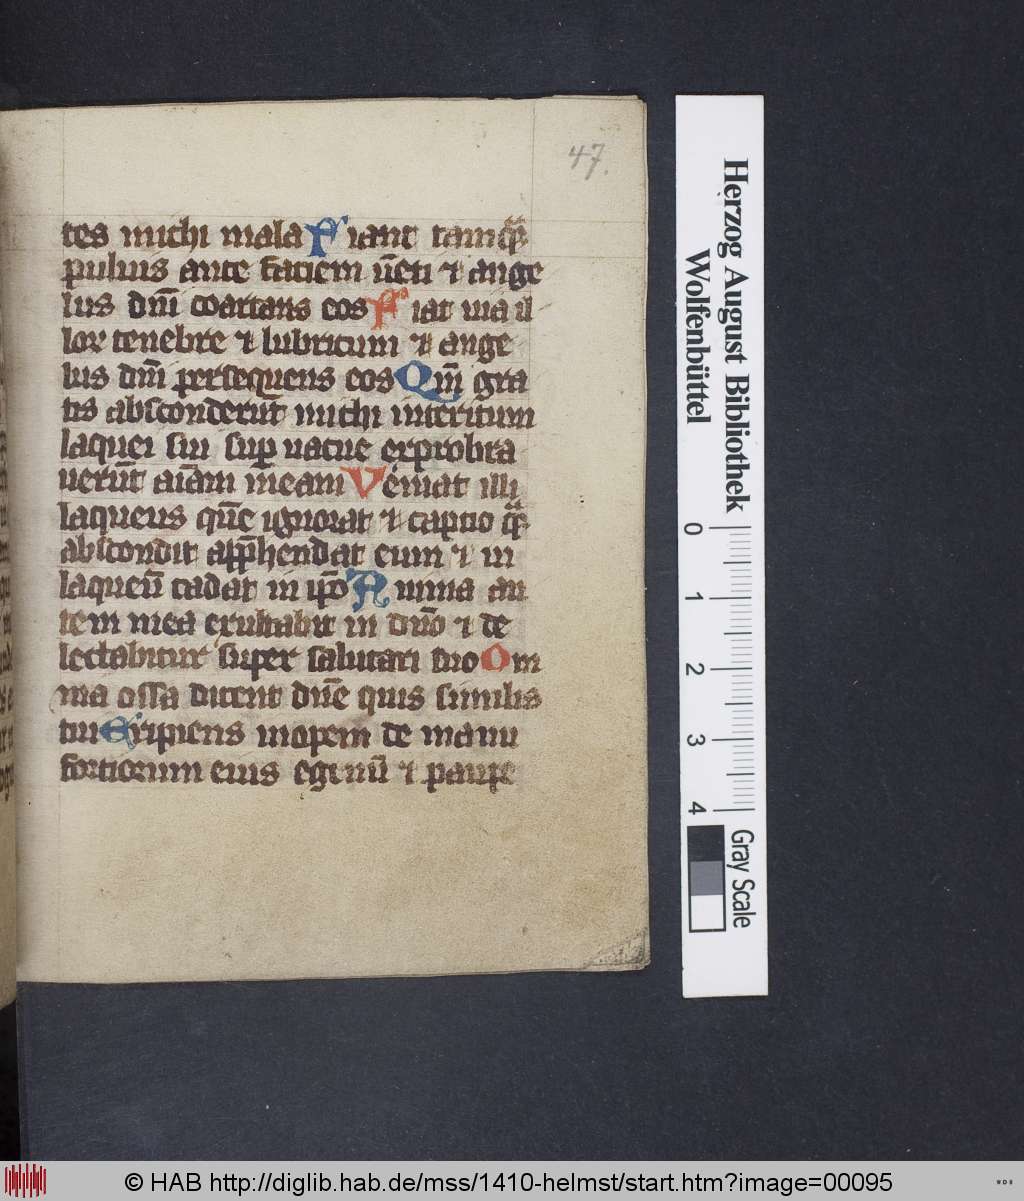 47.
tes michi mala Fiant tamqͣꝫ
puluis ante faciem ūēti ⁊ ange
lus dn̄i coartans eos Fiat uia il
lor tenebre ⁊ lubricum ⁊ ange
lus dn̄i persequens eos Qm̄ gra
tis absconderūt michi interitum
laquei sui suꝑ uacue exprobra
uerūt aīam meam Veniat illi
laqueus quē ignorat ⁊ captio qͣꝫ
abscondit app̄hendat eum ⁊ in
laqueū cadat in ip̄o Anima au
tem mea exultabit in dn̄o ⁊ de
lectabitur super salutari suo Om
nia ossa dicent dn̄e quis similis
tui Eripiens inopem de manu
fortiorum eius egenū ⁊ paupe
Herzog August Bibliothek
Wolfenbüttel
0 1 2 3 4
Gray Scale
© HAB http://diglib.hab.de/mss/1410-helmst/start.htm?image=00095